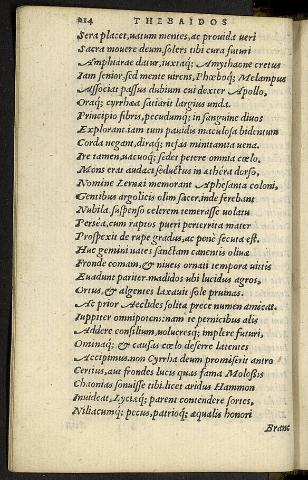 214 THEBAIDOS
Sera placet, uatum mentes, ac prouida ueri
Sacra mouere deum, solers tibi cura futuri
Amphiarae datur, iuxtaq; Amythaone cretus
Iam senior, sed mente uirens, Phœboq; Melampus
Associat passus dubium cui dexter Apollo,
Oraq; cyrrhæa satiarit largius unda.
Principio fibris, pecudumq; in sanguine diuos
Explorant. iam tum pauidis maculosa bidentum
Corda negant, diraq; nefas minitantia uena.
Ire tamen, uacuoq; sedet petere omnia cœlo.
Mons erat audaci seductus in æthera dorso,
Nomine Lernæi memorant Aphesanta coloni,
Gentibus argolicis olim sacer, inde ferebant
Nubila suspenso celerem temerasse uolatu
Persea, cum raptos pueri perterrita mater
Prospexit de rupe gradus, ac penè secuta est.
Huc gemini uates sanctam canentis oliuæ
Fronde comam, & niueis ornati tempora uittis
Euadunt pariter. madidos ubi lucidus agros,
Ortus, & algentes laxauit sole pruinas.
Ac prior Aeclides solita prece numen amicat.
Iuppiter omnipotens: nam te pernicibus alis
Addere consilium, uolucresq; implere futuri,
Ominaq; & causas cœlo deferre latentes
Accipimus. non Cyrrha deum promiserit antro
Certius, aut frondes lucis quas fama Molossis
Chaonias sonuisse tibi. licet aridus Hammon
Inuideat, Lyciaq; parens contendere sortes,
Niliacumq; pecus, patrioq; æqualis honori
Branc